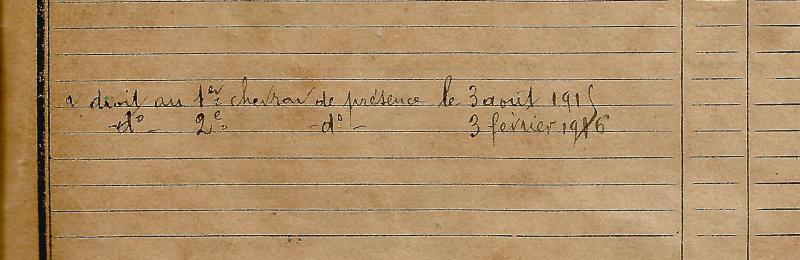 a droit au 1er chevron de présence le 3 août 1915
-do- 2e -do- 3 février 1916